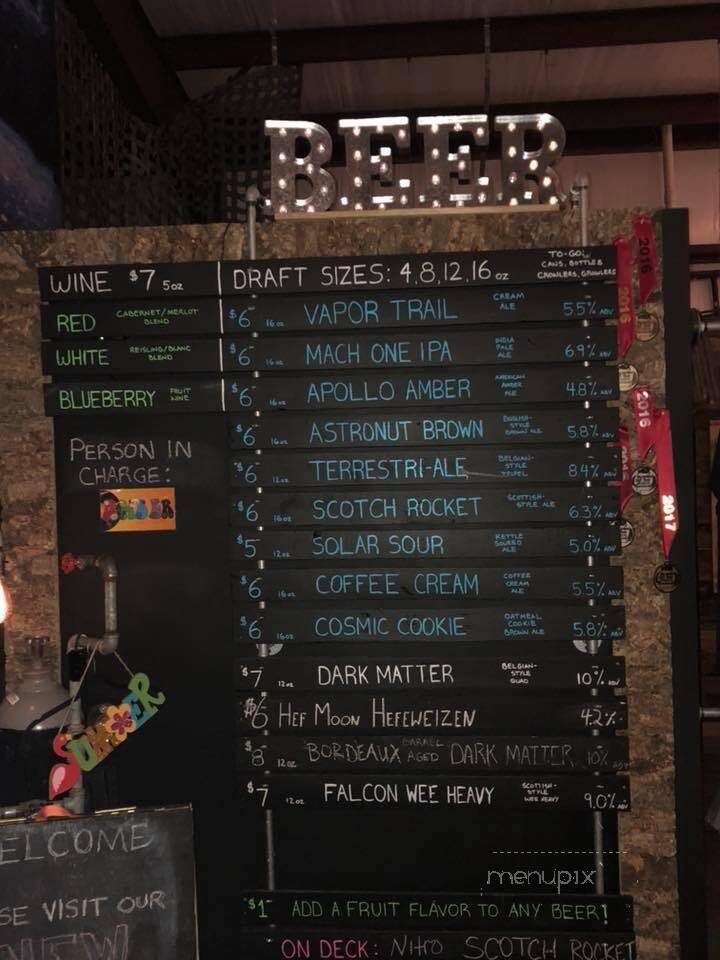 BEER
WINE $7 5oz
DRAFT SIZES: 4,8,12,16 oz
TO-GO:
CANS, BOTTLES
CROWLERS, GROWLERS
RED CABERNET/MERLOT BLEND
WHITE REISLING/BLANC BLEND
BLUEBERRY FRUIT WINE
PERSON IN
CHARGE:
$6 16oz VAPOR TRAIL CREAM ALE 5.5% ABV
$6 16oz MACH ONE IPA INDIA PALE ALE 6.9% ABV
$6 16oz APOLLO AMBER AMERICAN AMBER ALE 4.8% ABV
$6 16oz ASTRONUT BROWN ENGLISH-STYLE BROWN ALE 5.8% ABV
$6 12oz TERRESTRI-ALE BELGIAN-STYLE TRIPEL 8.4% ABV
$6 16oz SCOTCH ROCKET SCOTTISH-STYLE ALE 6.3% ABV
$5 12oz SOLAR SOUR KETTLE SOURED ALE 5.0% ABV
$6 16oz COFFEE CREAM COFFEE CREAM ALE 5.5% ABV
$6 16oz COSMIC COOKIE OATMEAL COOKIE BROWN ALE 5.8% ABV
$7 12oz DARK MATTER BELGIAN-STYLE QUAD 10% ABV
$6 HEF MOON HEFEWEIZEN 4.2%
$8 12oz BORDEAUX BARREL AGED DARK MATTER 10% ABV
$7 12oz FALCON WEE HEAVY SCOTTISH-STYLE WEE HEAVY 9.0% ABV
$1 ADD A FRUIT FLAVOR TO ANY BEER!
ON DECK: NITRO SCOTCH ROCKET
2016
2016
2016
2017
SUMMER
ELCOME
SE VISIT OUR
NEW
menupix